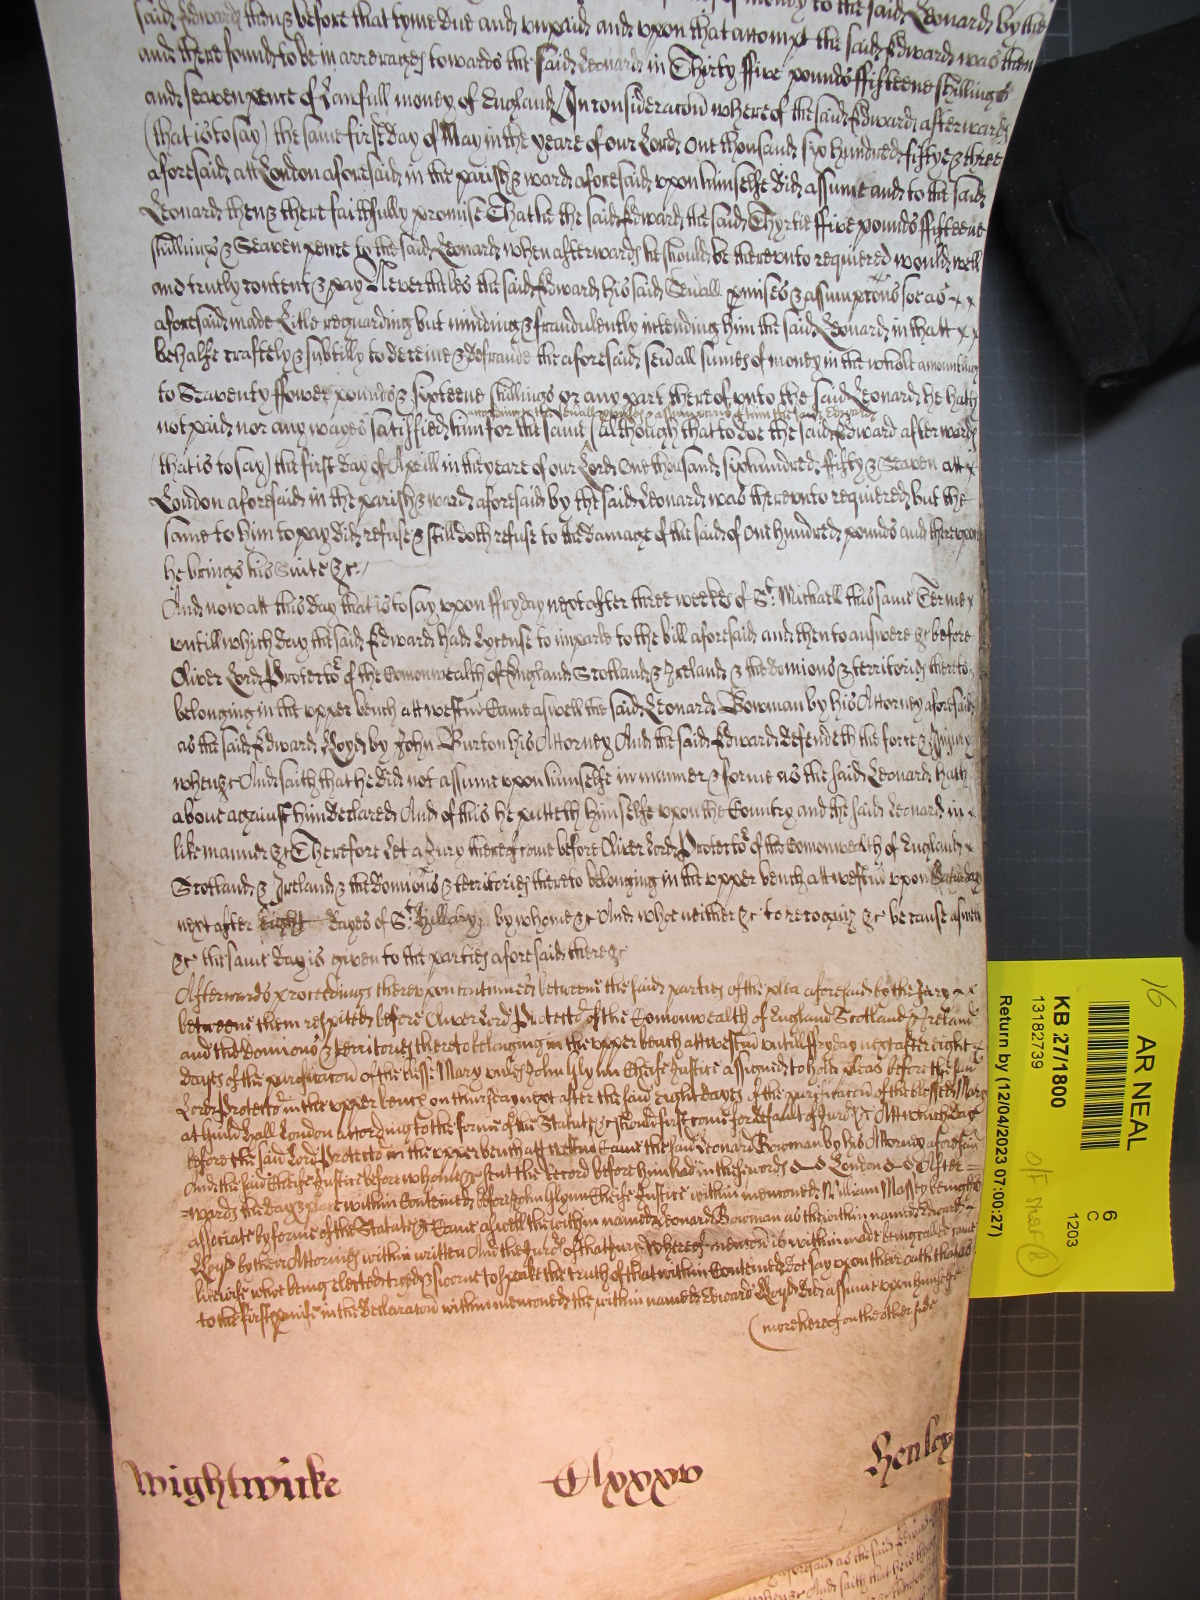 said Edward then & before that tyme due and unpaid and upon that accompt the said Edward was then
and there found to be in arrerages towards the said Leonard in Thirty ffive pounds ffifteene shillings
and seaven pence of Lawfull money of England In consideracon whereof the said Edward afterwards
(that is to say) the same first day of May in the yeare of our Lord One thousand six hundred fiftye & three
aforesaid att London aforesaid in the parish & ward aforesaid upon himselfe did assume and to the said
Leonard then & there faithfully promise That he the said Edward the said Thyrtie ffive pounds ffifteene
shillings & Seaven pence to the said Leonard when afterwards he should be thereunto required would well
and truely content & pay Neverthelesse the said Edward his said Sevall pmises & assumptons soe as x x
aforesaid made Litle reguarding but minding & fraudulently intending him the said Leonard in thatt x x
behalfe craftely & subtilly to deceive & defraude the aforesaid sevall sumes of money in the whole amounting
to Seaventy ffower pounds & sixteene shillings or any part thereof unto the said Leonard he hath
according to the sevall pmises & assumptons of him the said Edward
not paid nor any wayes satisfied him for the same (although that to doe the said Edward afterwards
(that is to say) the first day of Aprill in the yeare of our Lord One thousand six hundred ffifty & Seaven att x
London aforesaid in the parish & ward aforesaid by the said Leonard was thereunto required but the
same to him to pay did refuse & still doth refuse to the damage of the said of One hundred pounds and thereupon
he brings his Suite &c
And now att this day that is to say upon ffryday next after three weekes of St Michaell this same Terme x
untill which day the said Edward had Lycense to imparle to the bill aforesaid and then to answere &c before
Oliver Lord Protector of the Comonwealth of England Scotland & Ireland & the domions & territories thereto
belonging in the upper bench att westm Came aswell the said Leonard Bowman by his Attorney aforesaid
as the said Edward Lloyd by John Burton his Attorney And the said Edward defendeth the force & Injury
when &c And saith that he did not assume upon himselfe in manner & forme as the said Leonard hath
above against him declared And of this he putteth himselfe upon the Country and the said Leonard in x
like manner &c Therefore Let a Jury thereof come before Oliver Lord Protector of the Comonwealth of England x
Scotland & Ireland & the domions & territories thereto belonging in the upper bench att westm upon Saturday
next after Eight dayes of St Hillary by whome &c And who neither &c to recognize &c because aswell
&c the same day is given to the parties aforesaid there &c
Afterwards proceedings thereupon continued betweene the said parties of the plea aforesaid by the Jury x x
betweene them respited before Oliver Lord Protector of the Comonwealth of England Scotland & Ireland
and the domions & territories thereto belonging in the upper bench att westm untill ffryday next after eight
dayes of the purificacon of the blessed Mary unles John Glynn Cheife Justice assigned to hold pleas before the said
Lord Protector in the upper bench on thursday next after the said eight dayes of the purificacon of the blessed Mary
at Guild hall London according to the forme of the Statute &c should first come for default of Jurors &c Att which day
before the said Lord Protector in the upper bench att westm Came the said Leonard Bowman by his Attorney aforesaid
And the said Cheife Justice before whome &c sent the record before him had in these words London After
wards the day & place within Conteined before John Glynn Cheife Justice within mentioned William Massey being
associate by forme of the Statute &c Came aswell the within named Leonard Bowman as the within named Edward
Lloyd by their Attornies within written And the Jurors of that Jury whereof mencon is within made being called came
likewise who being elected tryed & sworne to speake the truth of that within Conteined doe say upon their oath that as
to the first pmise in the declaracon within mencioned the within named Edward Lloyd did assume upon himselfe
(more hereof on the other side
Wightwicke Clxxxv Henley
aforesaid as the said Edward
when &c And saith that he
16
AR NEAL
6
C
1203
KB 27/1800
13182739
Return by (12/04/2023 07:00:27)
O/F shelf (B)